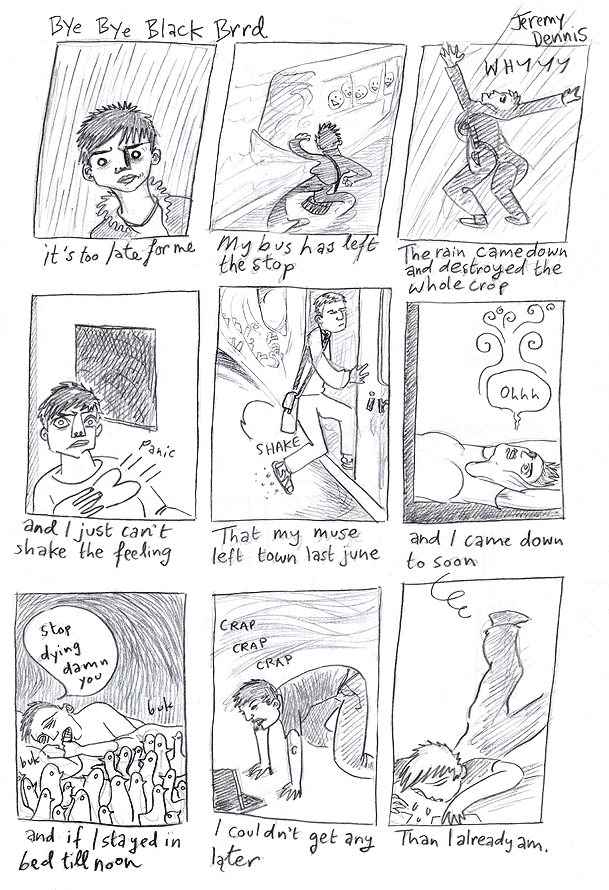 Bye Bye Black Brrd
Jeremy
Dennis
it's too late for me
My bus has left
the stop
WHYYY
The rain came down
and destroyed the
whole crop
Panic
and I just can't
shake the feeling
SHAKE
That my muse
left town last june
Ohhh
and I came down
to soon
Stop
dying
damn
you
buk
buk
and if I stayed in
bed till noon
CRAP
CRAP
CRAP
I couldn't get any
later
Than I already am.